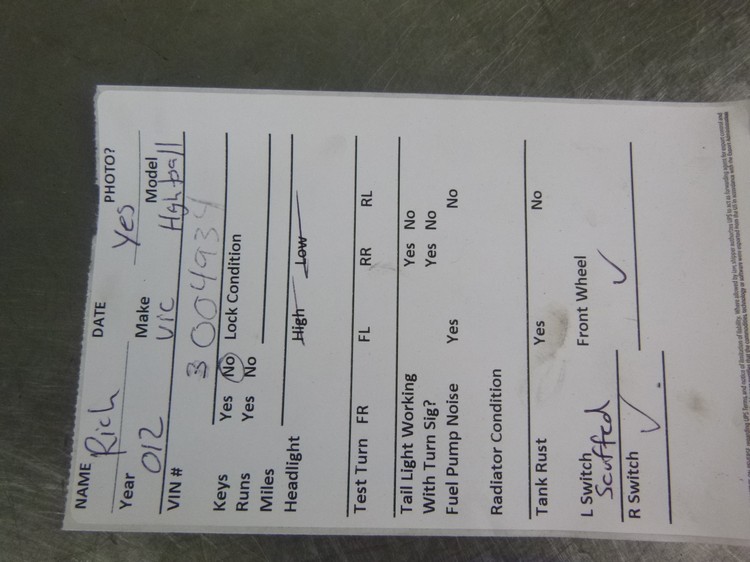 NAME Rich DATE PHOTO?
Yes
Year 012 Make Vic Model Highball
VIN # 3004934
Keys Yes No Lock Condition
Runs Yes No
Miles
Headlight High Low
Test Turn FR FL RR RL
Tail Light Working Yes No
With Turn Sig? Yes No
Fuel Pump Noise Yes No
Radiator Condition
Tank Rust Yes No
L Switch Scuffed Front Wheel
R Switch